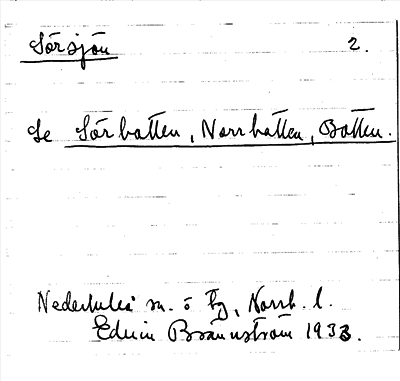 Sörsjön 2.
Se Sörbotten, Norrbotten, Botten.
Nederluleå sn. o tg, Norrb. l.
Edvin Brännström 1933.